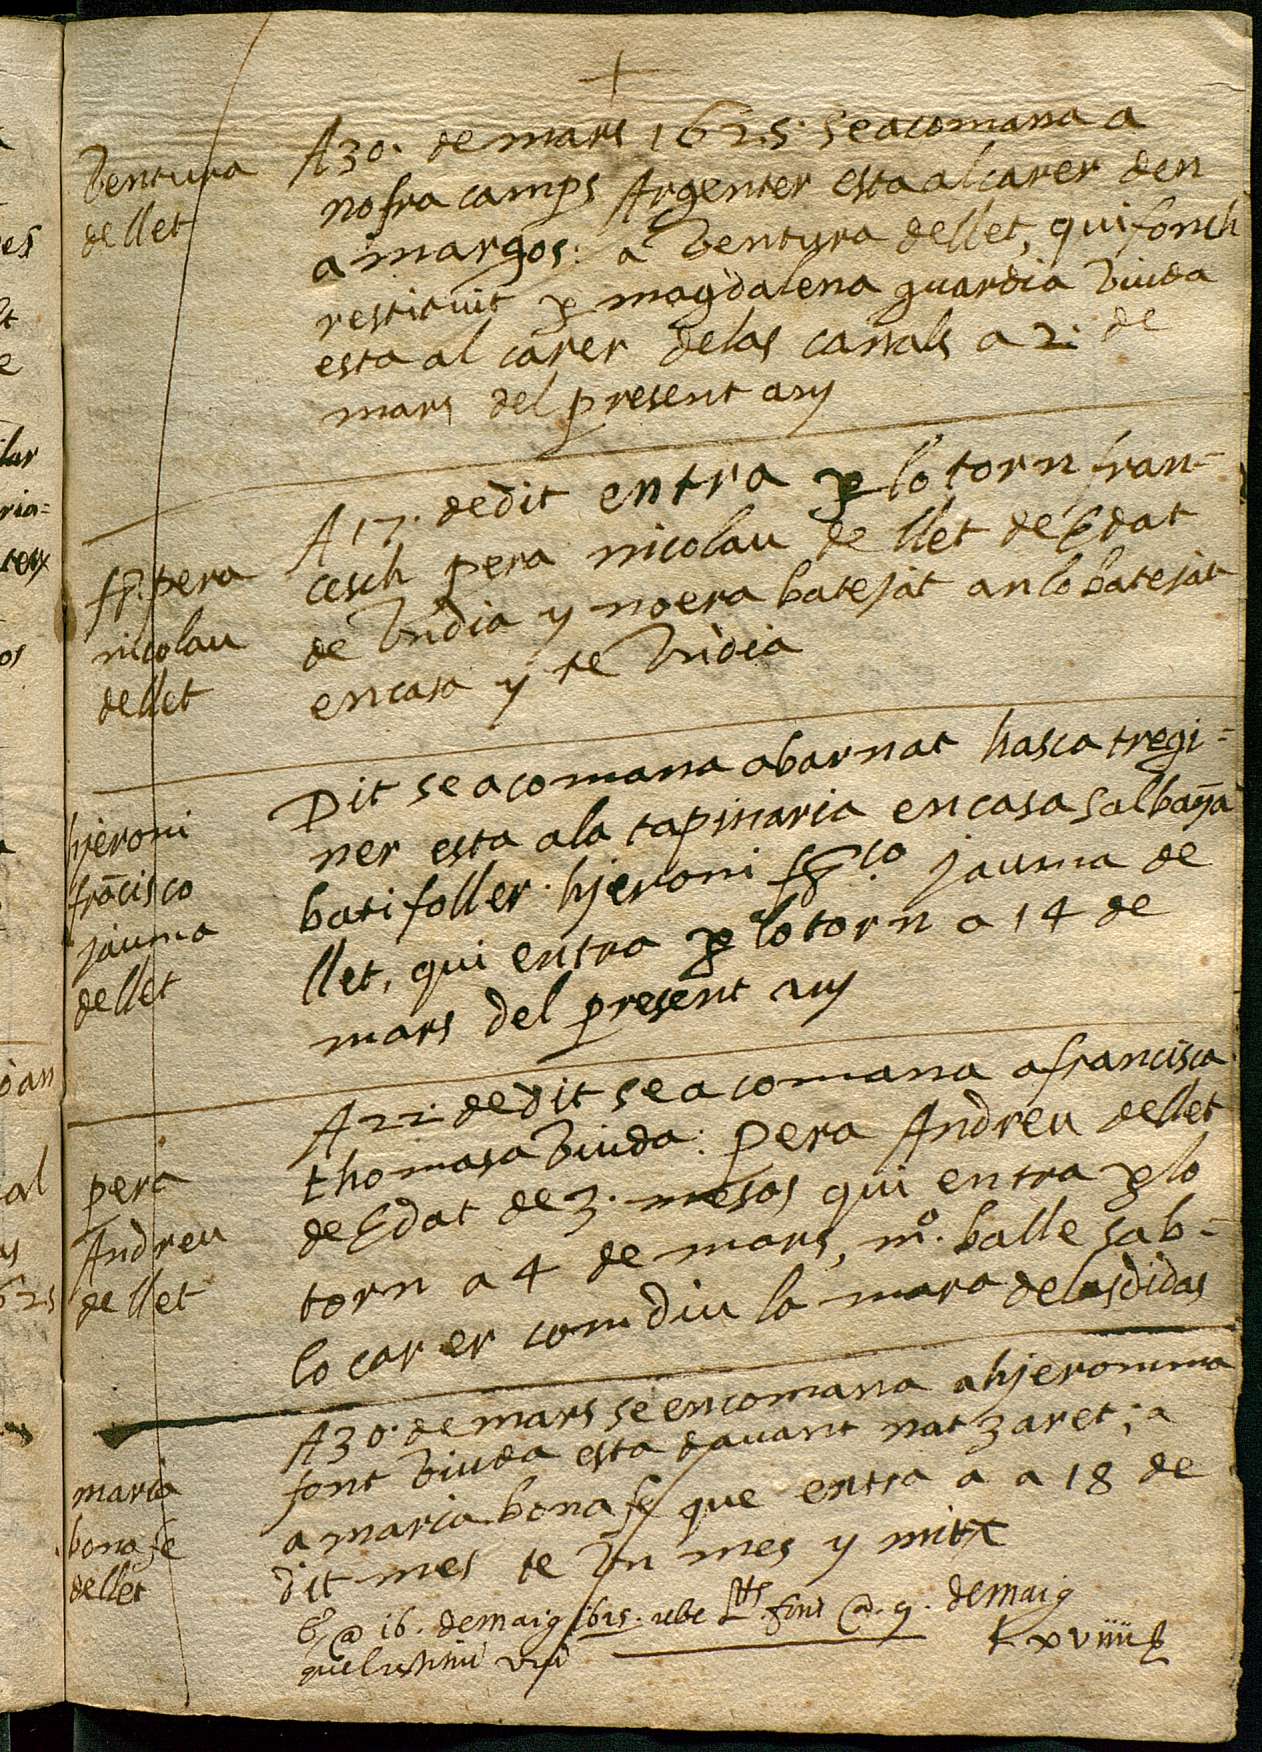 Ventura
de llet
A 30. de mars 1625. se acomana a
nofra camps Argenter esta al carer den
amargos: a Ventura de llet, qui fonch
restituit p magdalena guardia Viuda
esta al carer de las canals a 2. de
mars del present any
fr. pera
nicolau
de llet
A 17. de dit entra p lo torn fran-
cesch pera nicolau de llet de Edat
de Vn dia y no era batejat an lo batejat
en casa y te Vn dia
hjeroni
francisco
jauma
de llet
Dit se acomana a barnat hasca tregi=
ner esta a la tapinaria en casa salbaña
batifoller. hjeroni jauma de
llet, qui entra p lo torn a 14 de
mars del present any
pera
Andreu
de llet
A 22. de dit se acomana a francisca
thomasa Viuda: pera Andreu de llet
de Edat de 3. mesos qui entra p lo
torn a 4 de mars, mº. balle sab-
lo carer com diu la mara de las didas
maria
bona fe
de llet
A 30. de mars se encomana a hjeronima
font Viuda esta dauant natzaret; a
a maria bona fe que entra a a 18 de
dit mes te Vn mes y mitx
@ 16. de maig 1625. rebe @ 9. de maig